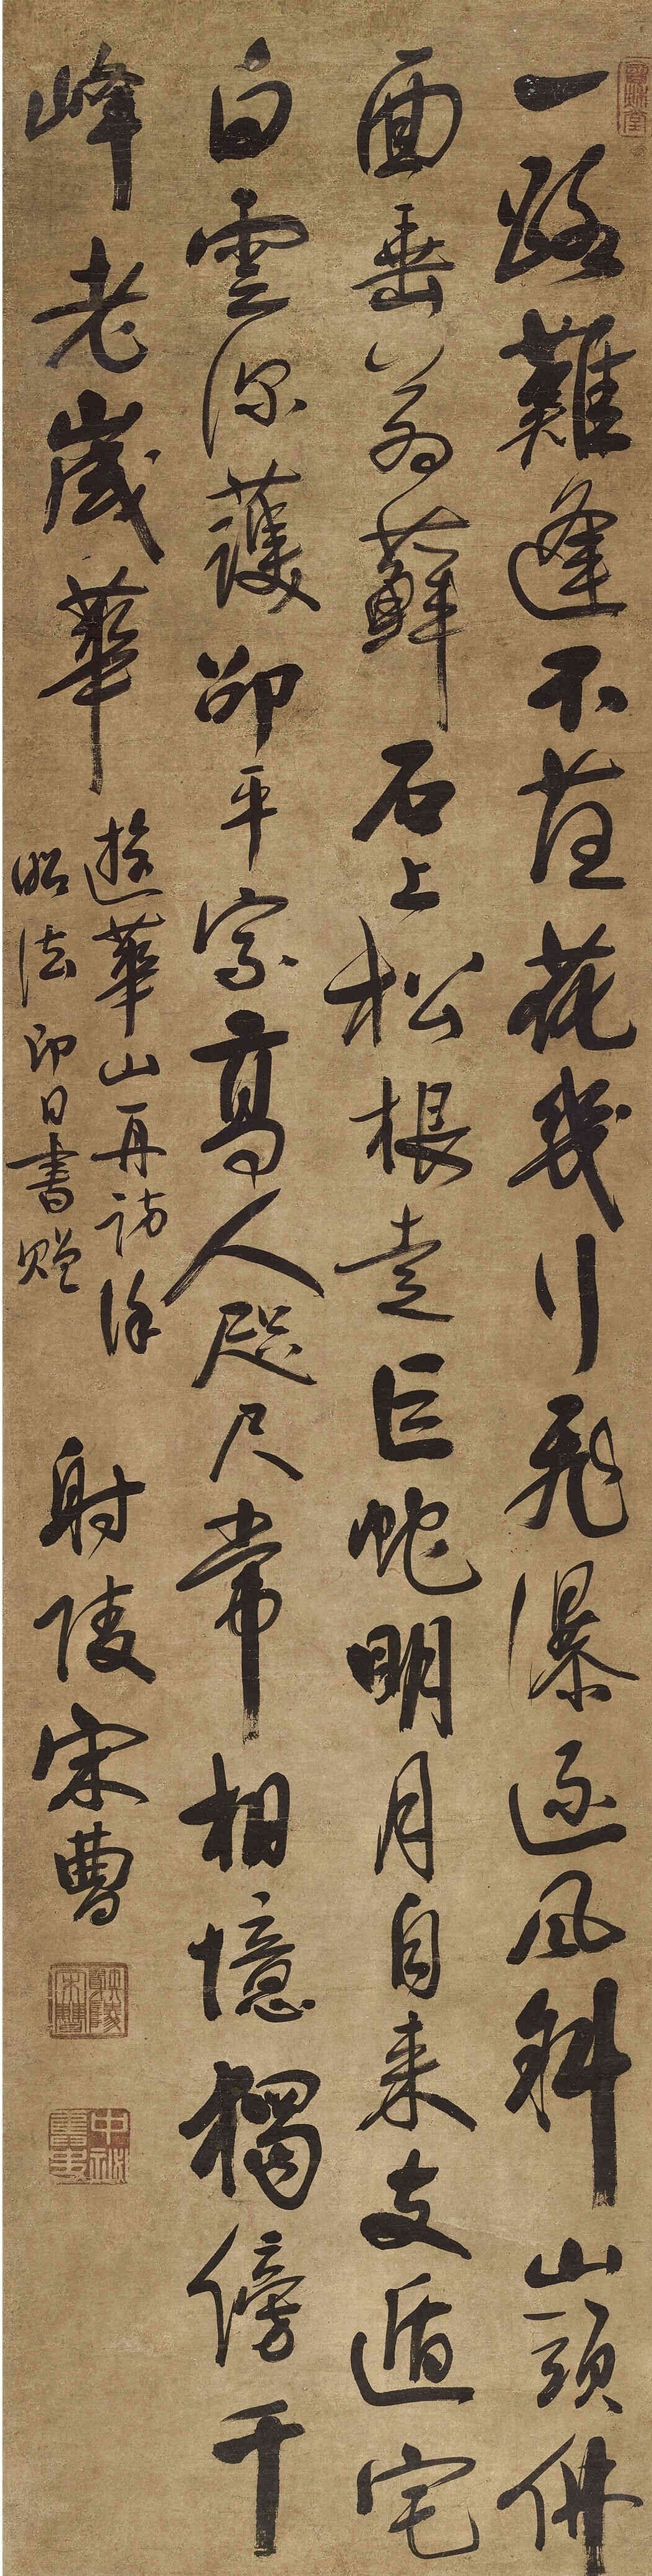 一路難逢不菴花幾行飛瀑逐風斜山頭佛
面垂蒼蘚石上松根走巨蛇明月自来支遁宅
白雲深護邵平家高人咫尺常相憶獨傍千
峰老歲華
遊華山再訪徐
昭法即日書贈
射陵宋曹